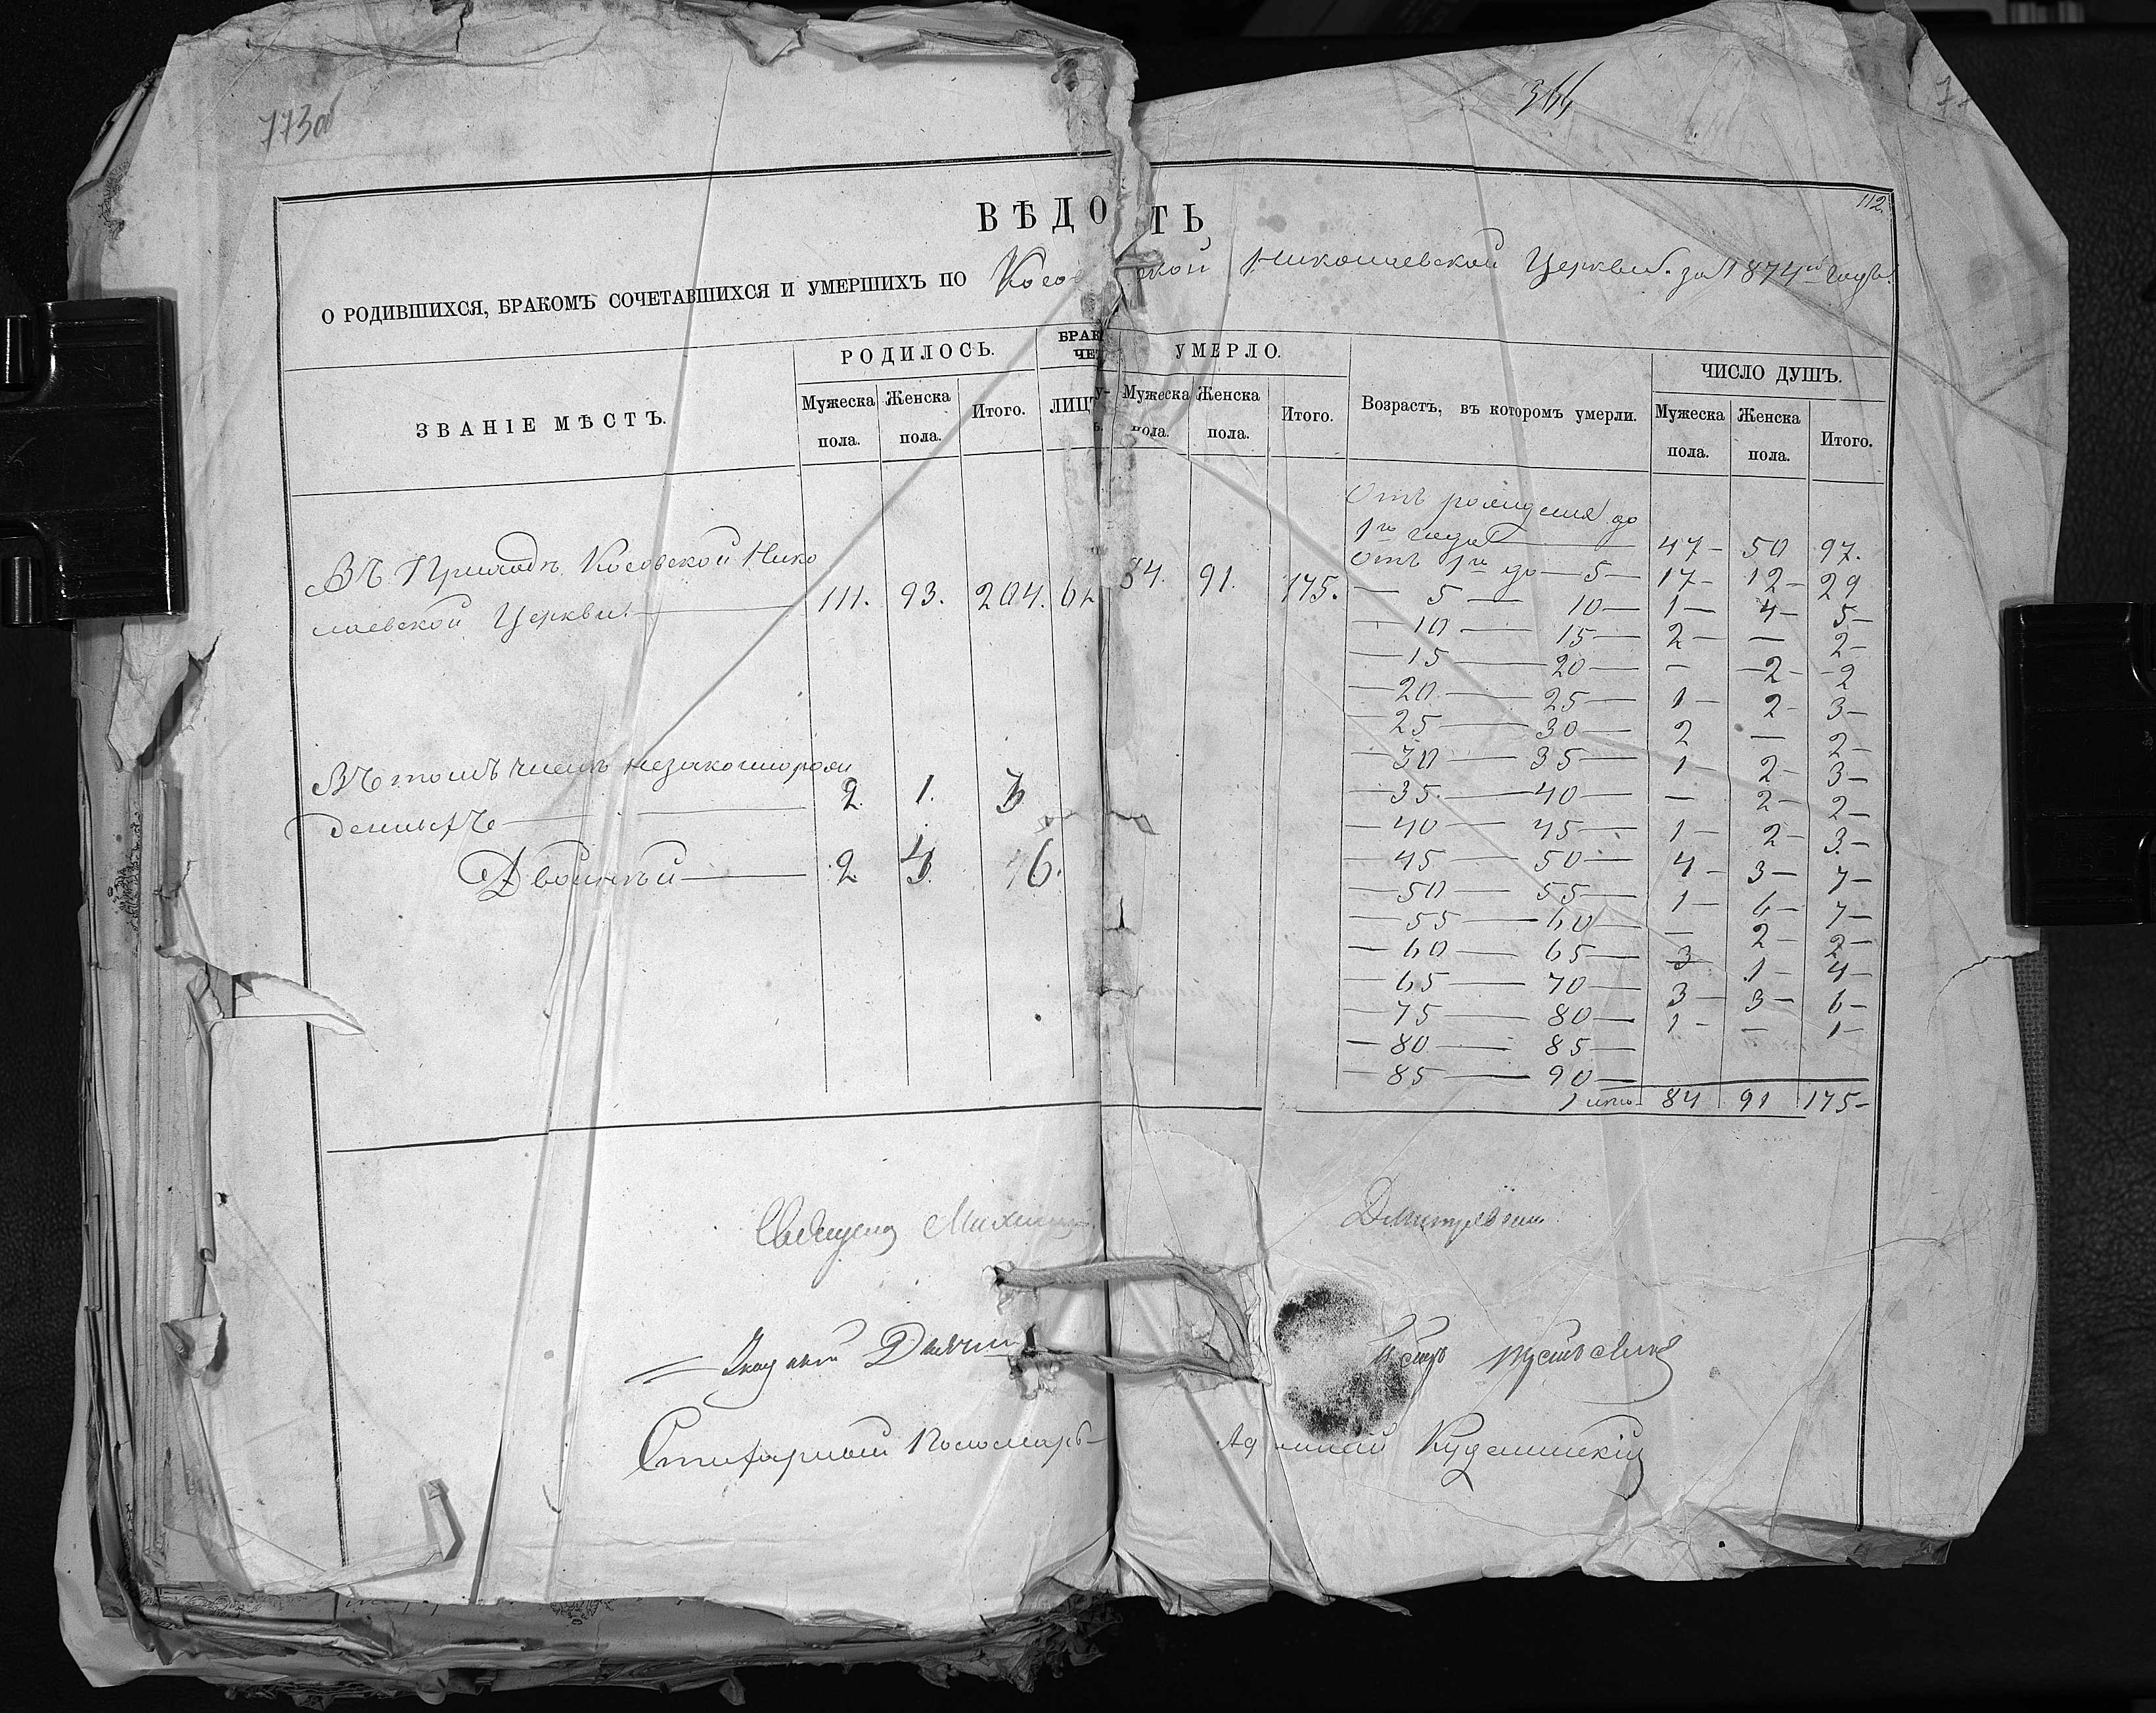 773об
344
112.
ВѢДО ТЬ
О РОДИВШИХСЯ, БРАКОМЪ СОЧЕТАВШИХСЯ И УМЕРШИХЪ ПО Косов ской Николаевской Церкви за 1874й годъ.
ЗВАНІЕ МѢСТЪ.
РОДИЛОСЬ.
Мужеска пола.
Женска пола.
Итого.
БРАК
ЧЕТ
ЛИЦЪ
УМЕРЛО.
Мужеска пола.
Женска пола.
Итого.
Возрастъ, въ которомъ умерли.
ЧИСЛО ДУШЪ.
Мужеска пола.
Женска пола.
Итого.
Въ Приходѣ Косовской Нико
лаевской Церкви — 111. 93. 204. 84. 91. 175.
Въ томъ числѣ незаконорож
денныхъ — 2. 1. 3
Двойнѣй — 2. 4 6.
Отъ рожденія до
1го года — 47 — 50 97.
Отъ 1го до — 5 — 17 — 12 — 29
— 5 — 10 — 1 — 4 — 5 —
— 10 — 15 — 2 — — 2 —
— 15 — 20 — — — 2 — 2
— 20 — 25 — 1 — 2 — 3 —
— 25 — 30 — 2 — 2 —
— 30 — 35 — 1 — 2 — 3 —
— 35 — 40 — — 2 — 2 —
— 40 — 45 — 1 — 2 — 3 —
— 45 — 50 — 4 — 3 — 7 —
— 50 — 55 — 1 — 6 — 7 —
— 55 — 60 — — 2 — 2 —
— 60 — 65 — 3 1 — 4 —
— 65 — 70 — 3 — 3 — 6 —
— 75 — 80 — 1 — — 1 —
— 80 — 85 —
— 85 — 90 —
84 91 175 —
Михаилъ
Петръ
Стихарный Пономарь